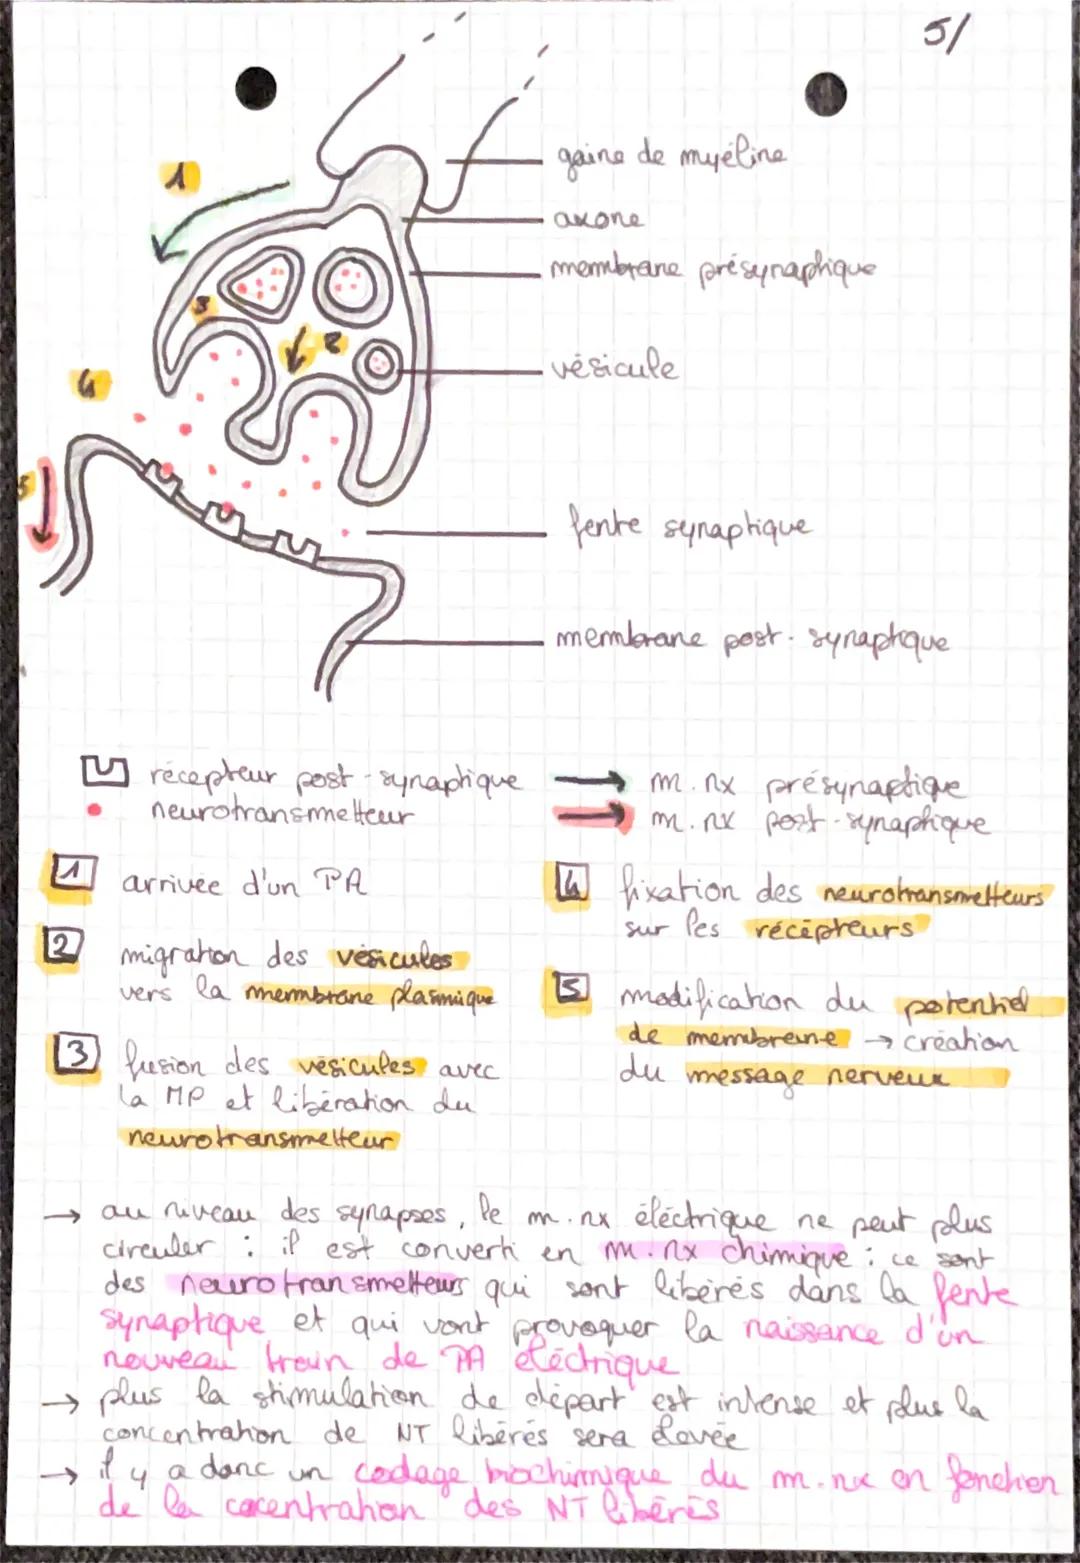 5/
gaine de myéline
axone
1
membrane présynaptique
3
2
vésicule
4
5
fente synaptique
membrane post-synaptique
récepteur post-synaptique
neurotransmetteur
m.nx présynaptique
m.nx post-synaptique
1 arrivée d'un PA
2 migration des vésicules
vers la membrane plasmique
3 fusion des vésicules avec
la MP et libération du
neurotransmetteur
4 fixation des neurotransmetteurs
sur les récépteurs
5 modification du potentiel
de membrane → création
du message nerveux
→ au niveau des synapses, le m.nx éléctrique ne peut plus
circuler : il est converti en m.nx chimique : ce sont
des neurotransmetteurs qui sont libérés dans la fente
synaptique et qui vont provoquer la naissance d'un
nouveau train de PA éléctrique
→ plus la stimulation de départ est intense et plus la
concentration de NT libérés sera élevée
→ il y a donc un codage biochimique du m.nx en fonction
de la cocentration des NT libérés